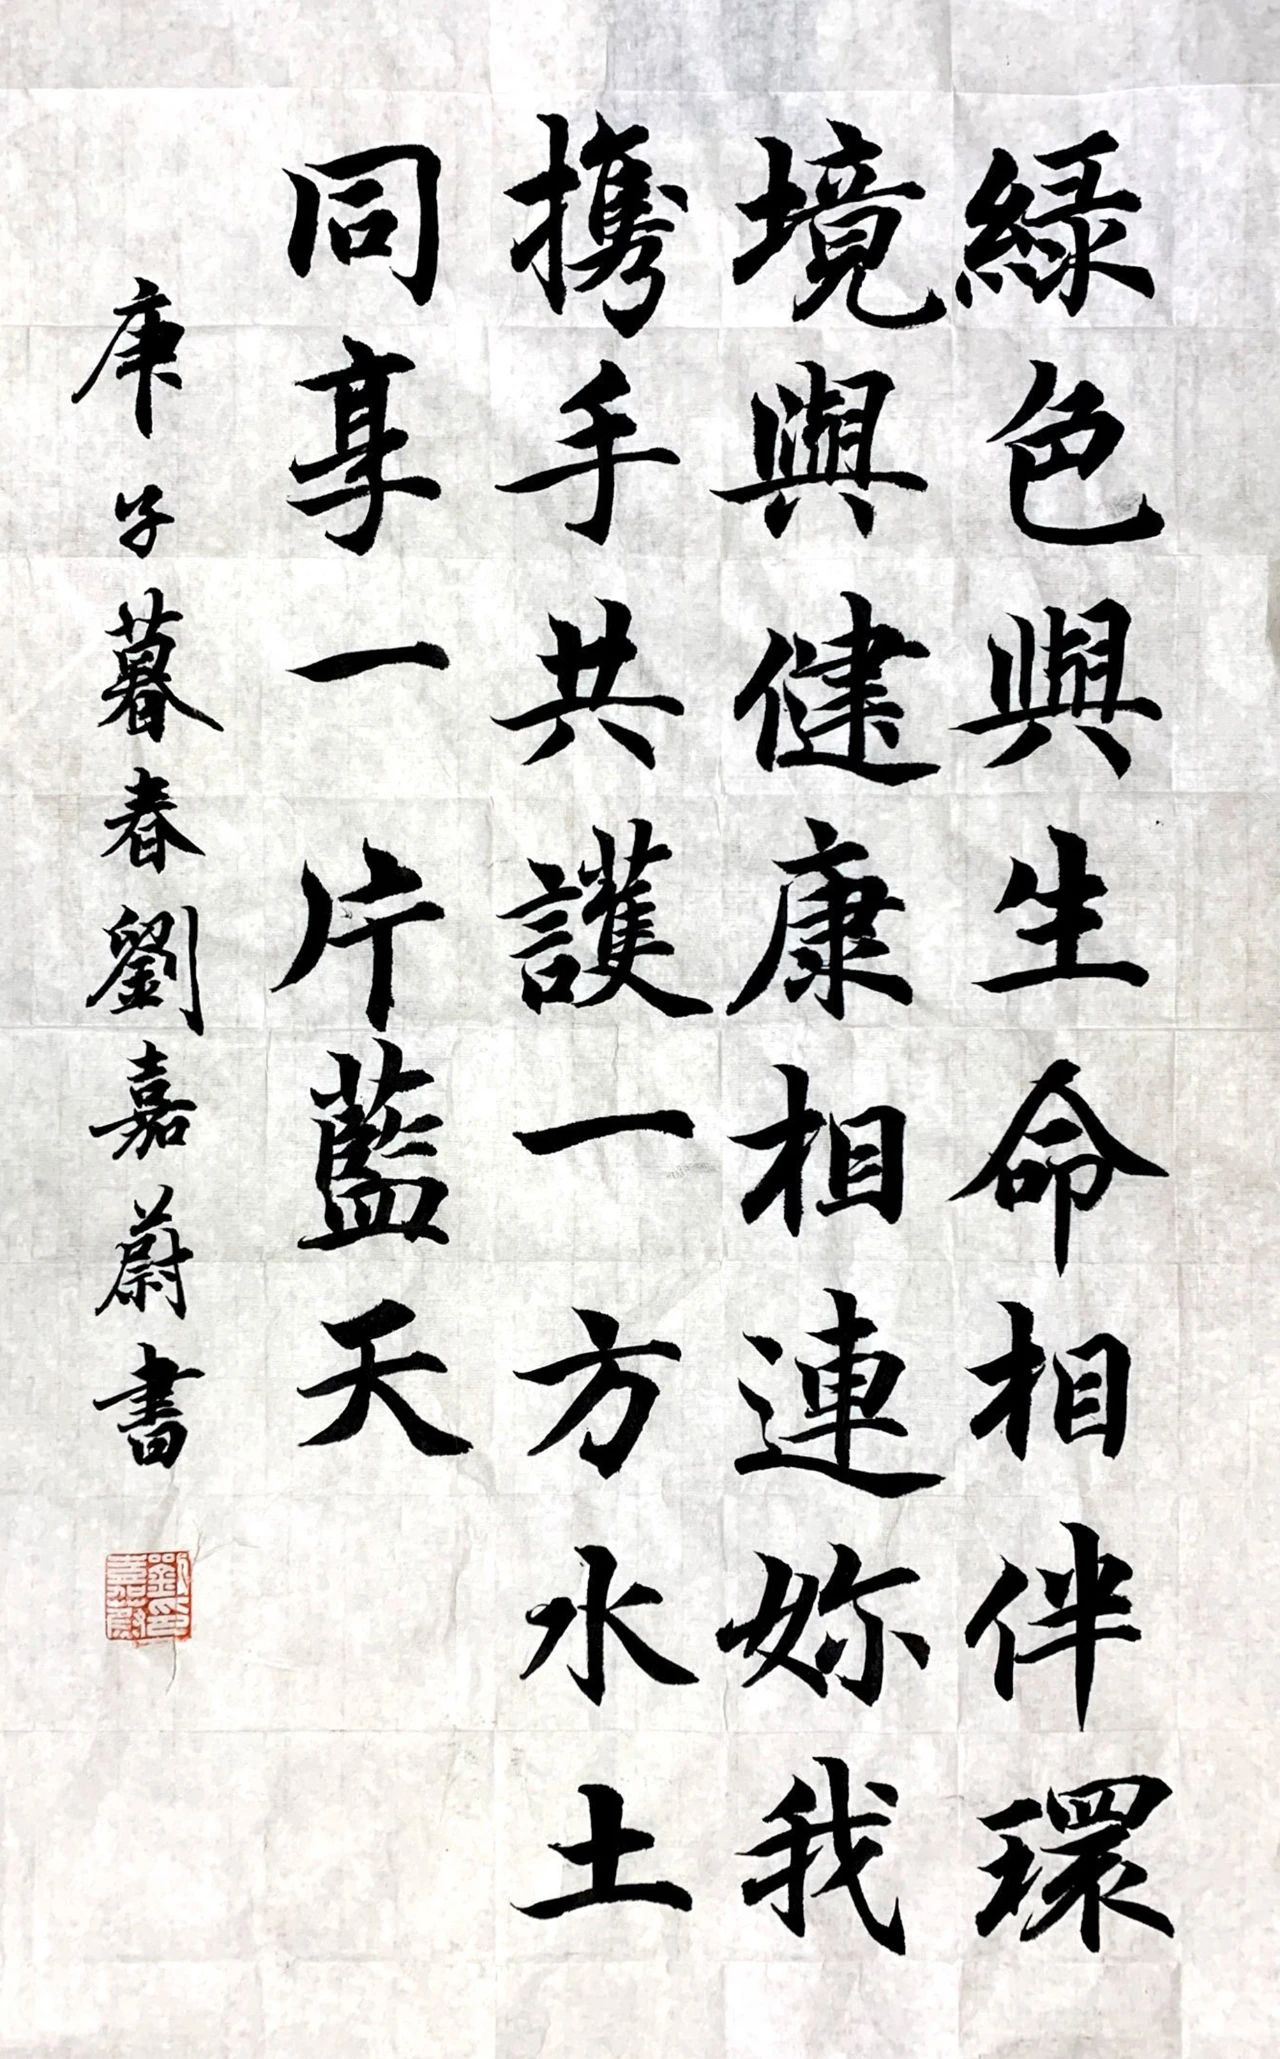 綠色與生命相伴環
境與健康相連妳我
携手共護一方水土
同享一片藍天
庚子暮春劉嘉蔚書
劉嘉蔚印